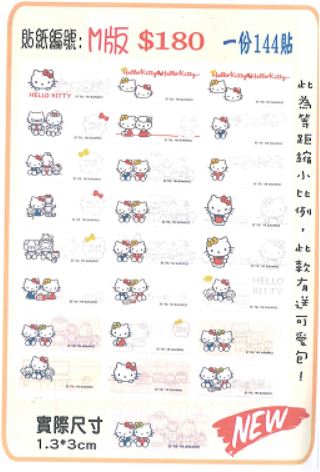 貼紙編號: M版 $180 一份144貼
HelloKitty HelloKitty
HelloKitty HelloKitty
HELLO KITTY
HELLO
KITTY
此為等距縮小比例，此款有送可愛包！
實際尺寸
1.3*3cm
NEW